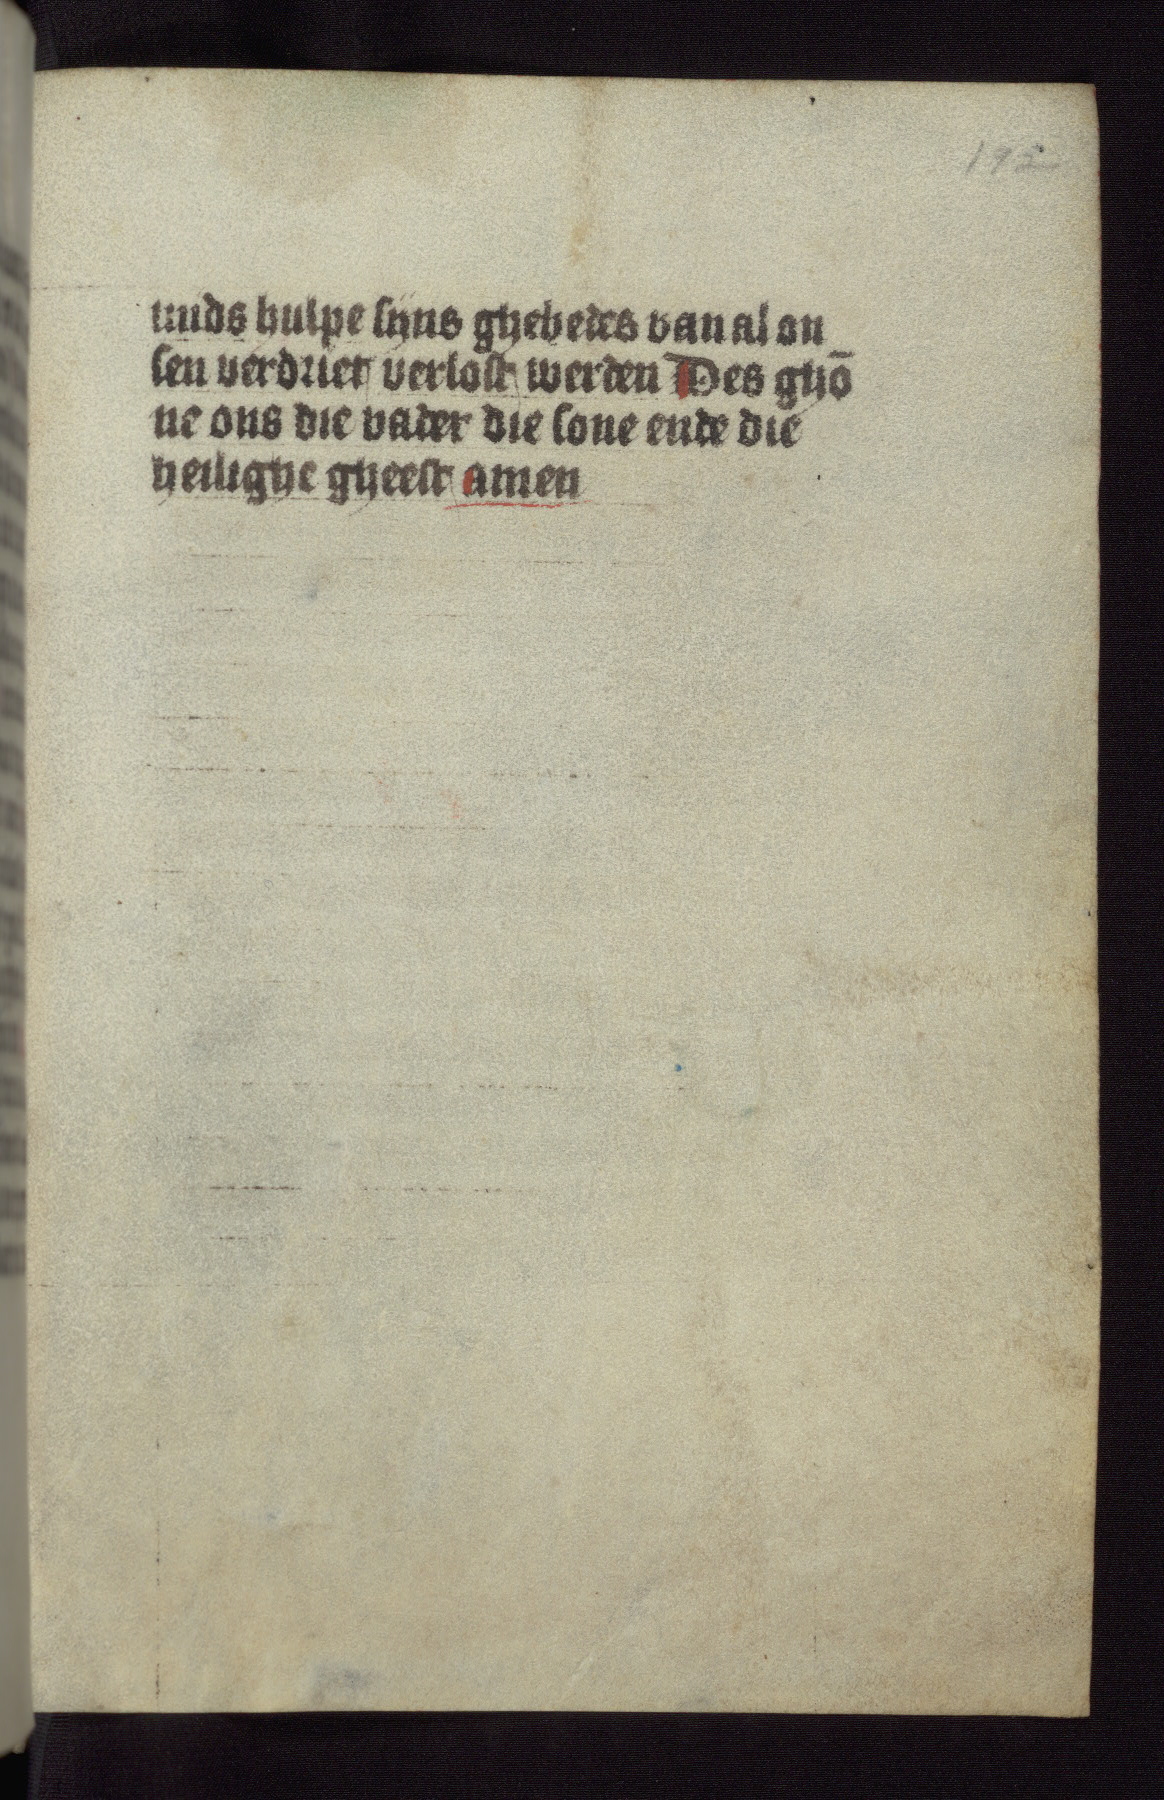 195
mids hulpe sijns ghebedes van al on
sen verdriet verlost werden Des ghō
ne ons die vader die sone ende die
heilighe gheest amen